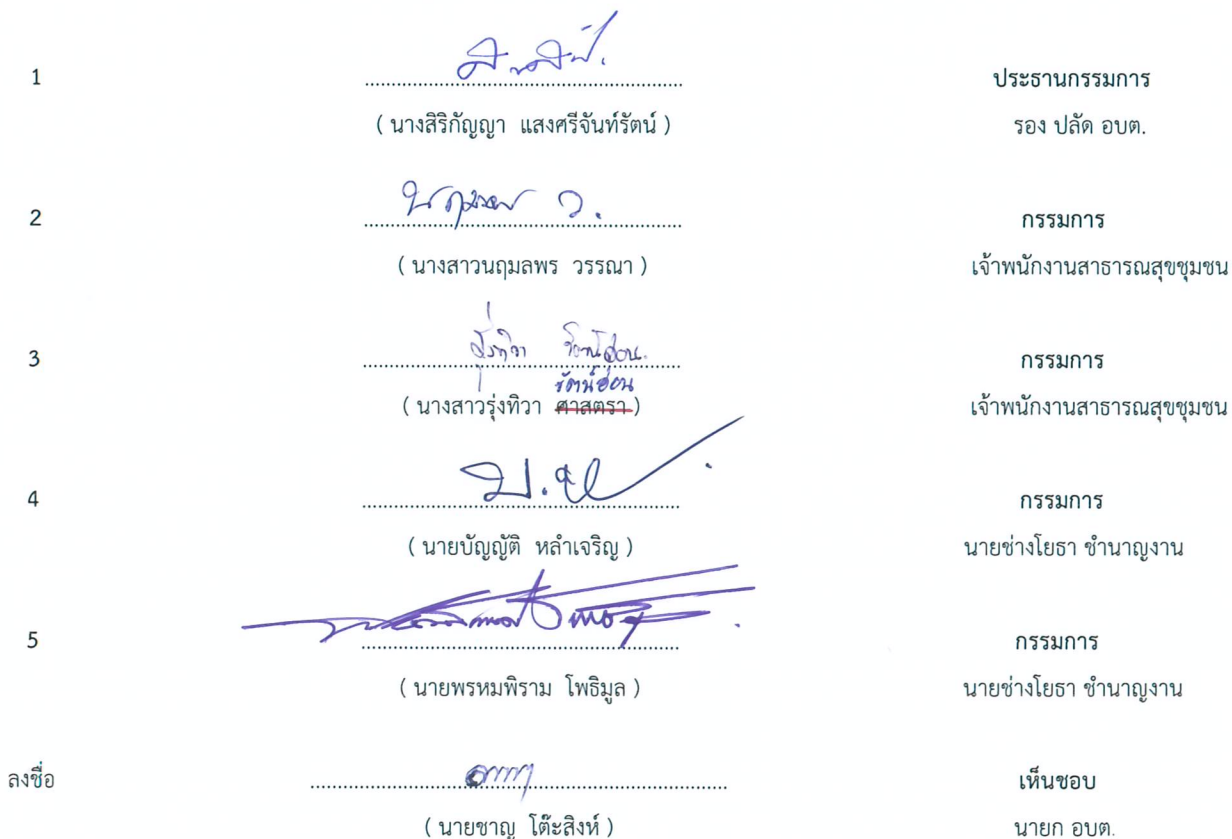 1 ประธานกรรมการ
( นางสิริกัญญา แสงศรีจันทร์รัตน์ ) รอง ปลัด อบต.
2 กรรมการ
( นางสาวนฤมลพร วรรณา ) เจ้าพนักงานสาธารณสุขชุมชน
3 รุ่งทิวา รัตน์อ่อน กรรมการ
รัตน์อ่อน
( นางสาวรุ่งทิวา ศาสตรา ) เจ้าพนักงานสาธารณสุขชุมชน
4 กรรมการ
( นายบัญญัติ หลำเจริญ ) นายช่างโยธา ชำนาญงาน
5 กรรมการ
( นายพรหมพิราม โพธิมูล ) นายช่างโยธา ชำนาญงาน
ลงชื่อ เห็นชอบ
( นายชาญ โต๊ะสิงห์ ) นายก อบต.